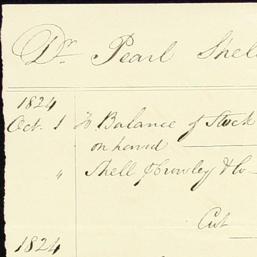 Dr. Pearl Shel
1824
Oct. 1 To Balance of Stock
on hand
" Shell Crowley & Co
Cut
1824